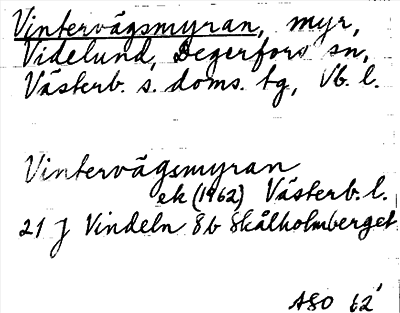 Vintervägsmyran, myr,
Videlund, Degerfors sn,
Västerb. s. doms. tg, Vb. l.
Vintervägsmyran
ek (1962) Västerb. l.
21 J Vindeln 8b Skålholmberget
ASO 62'